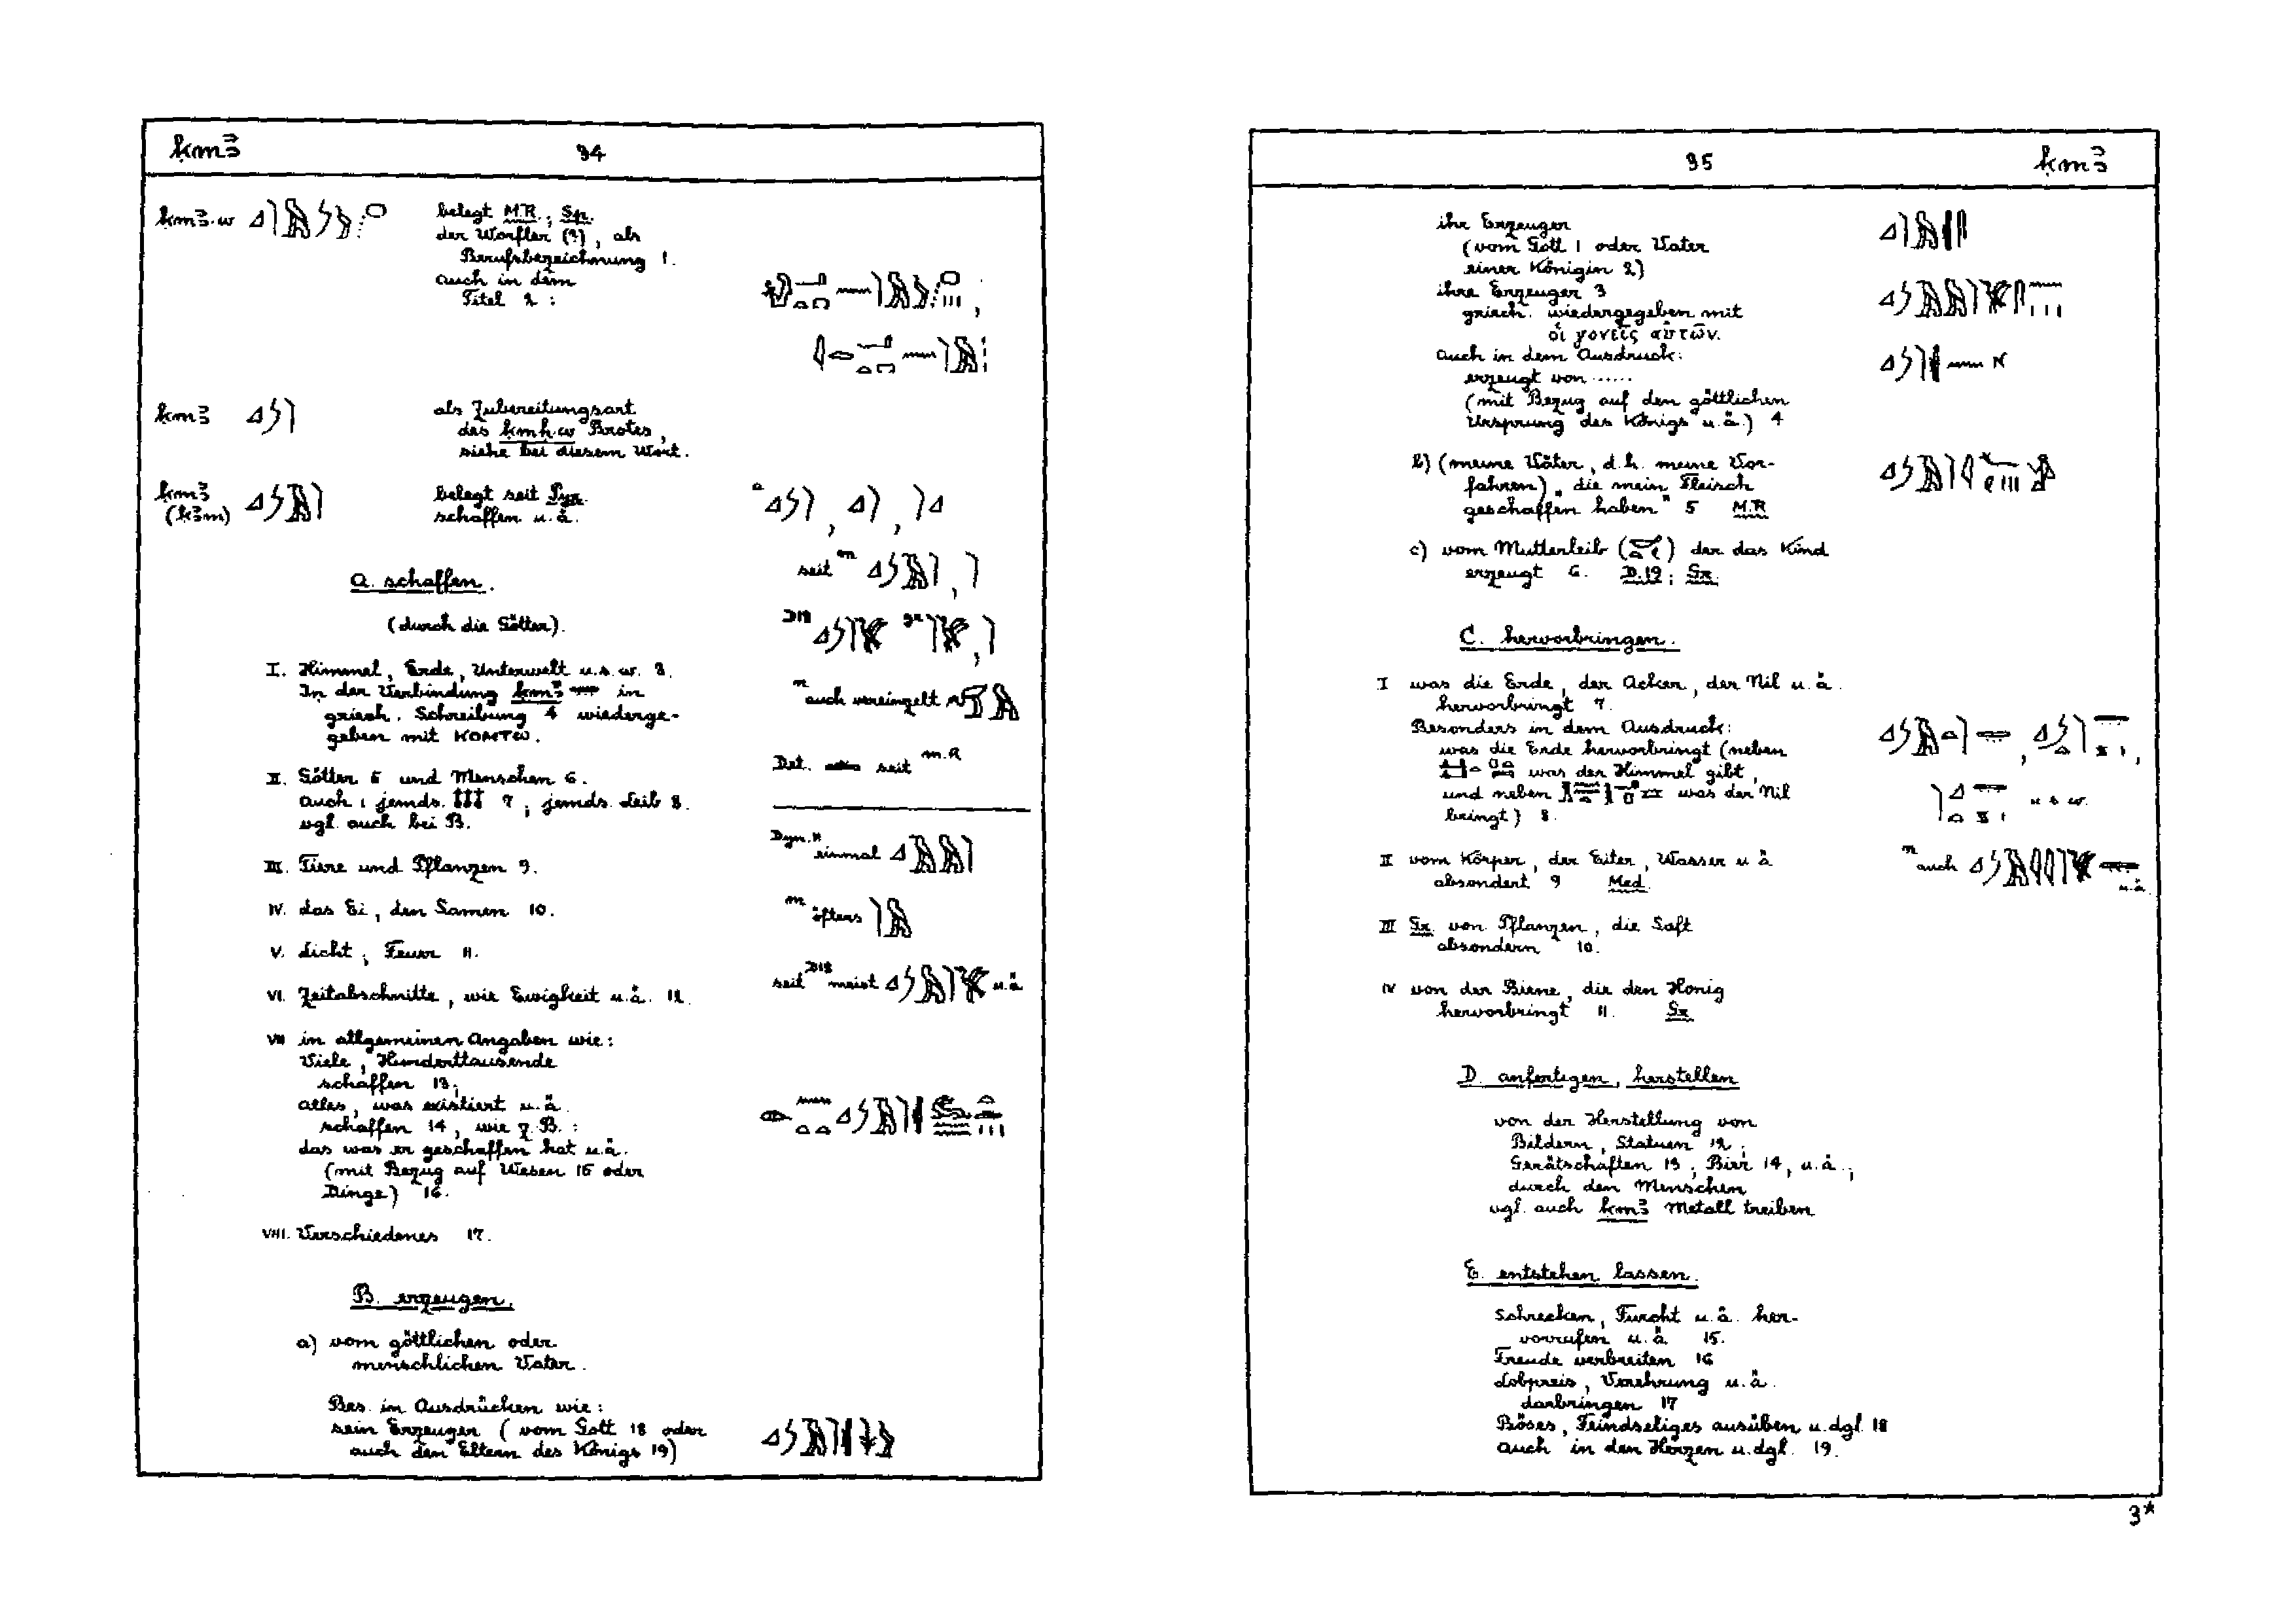 ḳmꜣ 34
ḳmꜣ.w
belegt M.R.; Sp.
der Worfler (?), als
Berufsbezeichnung 1.
auch in dem
Titel 2:
ḳmꜣ
als Zubereitungsart
des ḳmḥ.w Brotes,
siehe bei diesem Wort.
ḳmꜣ
(ḳꜣm)
belegt seit Pyr.
schaffen u.ä.
A. schaffen.
(durch die Götter).
I. Himmel, Erde, Unterwelt u.s.w. 3.
In der Verbindung ḳmꜣ in
griech. Schreibung 4 wiederge-
geben mit ΚΟΜΤω.
II. Götter 5 und Menschen 6.
Auch: jemds. 7; jemds. Leib 8.
vgl. auch bei B.
III. Tiere und Pflanzen 9.
IV. das Ei, den Samen 10.
V. Licht, Feuer 11.
VI. Zeitabschnitte, wie Ewigkeit u.ä. 12.
VII in allgemeinen Angaben wie:
Viele, Hunderttausende
schaffen 13;
alles, was existiert u.ä.
schaffen 14, wie z.B.:
das was er geschaffen hat u.ä.
(mit Bezug auf Wesen 15 oder
Dinge) 16.
VIII. Verschiedenes 17.
B. erzeugen.
a) vom göttlichen oder
menschlichen Vater.
Bes. in Ausdrücken wie:
sein Erzeuger (vom Gott 18 oder
auch den Eltern des Königs 19)
a
seit n
D19 gr
n auch vereinzelt
Det. seit m.R
Dyn. 11 einmal
m öfters
seit D18 meist u.ä
35 ḳmꜣ
ihr Erzeuger
(vom Gott 1 oder Vater
einer Königin 2)
ihre Erzeuger 3
griech. wiedergegeben mit
οἱ γονεῖς αὐτῶν.
auch in dem Ausdruck:
erzeugt von ......
(mit Bezug auf den göttlichen
Ursprung des Königs u.ä.) 4
N
b) (meine Väter, d.h. meine Vor-
fahren) „die mein Fleisch
geschaffen haben" 5 M.R
c) vom Mutterleib ( ) der das Kind
erzeugt 6. D.19; Gr.
C. hervorbringen.
I was die Erde, der Acker, der Nil u.ä.
hervorbringt 7.
Besonders in dem Ausdruck:
was die Erde hervorbringt (neben
was der Himmel gibt,
und neben was der Nil
bringt) 8.
u s w.
II vom Körper, der Eiter, Wasser u ä
absondert 9 Med.
n auch u.ä.
III Gr. von Pflanzen, die Saft
absondern 10.
IV von der Biene, die den Honig
hervorbringt 11. Gr
D. anfertigen, herstellen
von der Herstellung von
Bildern, Statuen 12;
Gerätschaften 13; Bier 14, u.ä.;
durch den Menschen
vgl. auch ḳmꜣ Metall treiben
E. entstehen lassen.
Schrecken, Furcht u.ä. her-
vorrufen u.ä 15.
Freude verbreiten 16
Lobpreis, Verehrung u.ä.
darbringen 17
Böses, Feindseliges ausüben u.dgl 18
auch in den Herzen u.dgl. 19.
3*